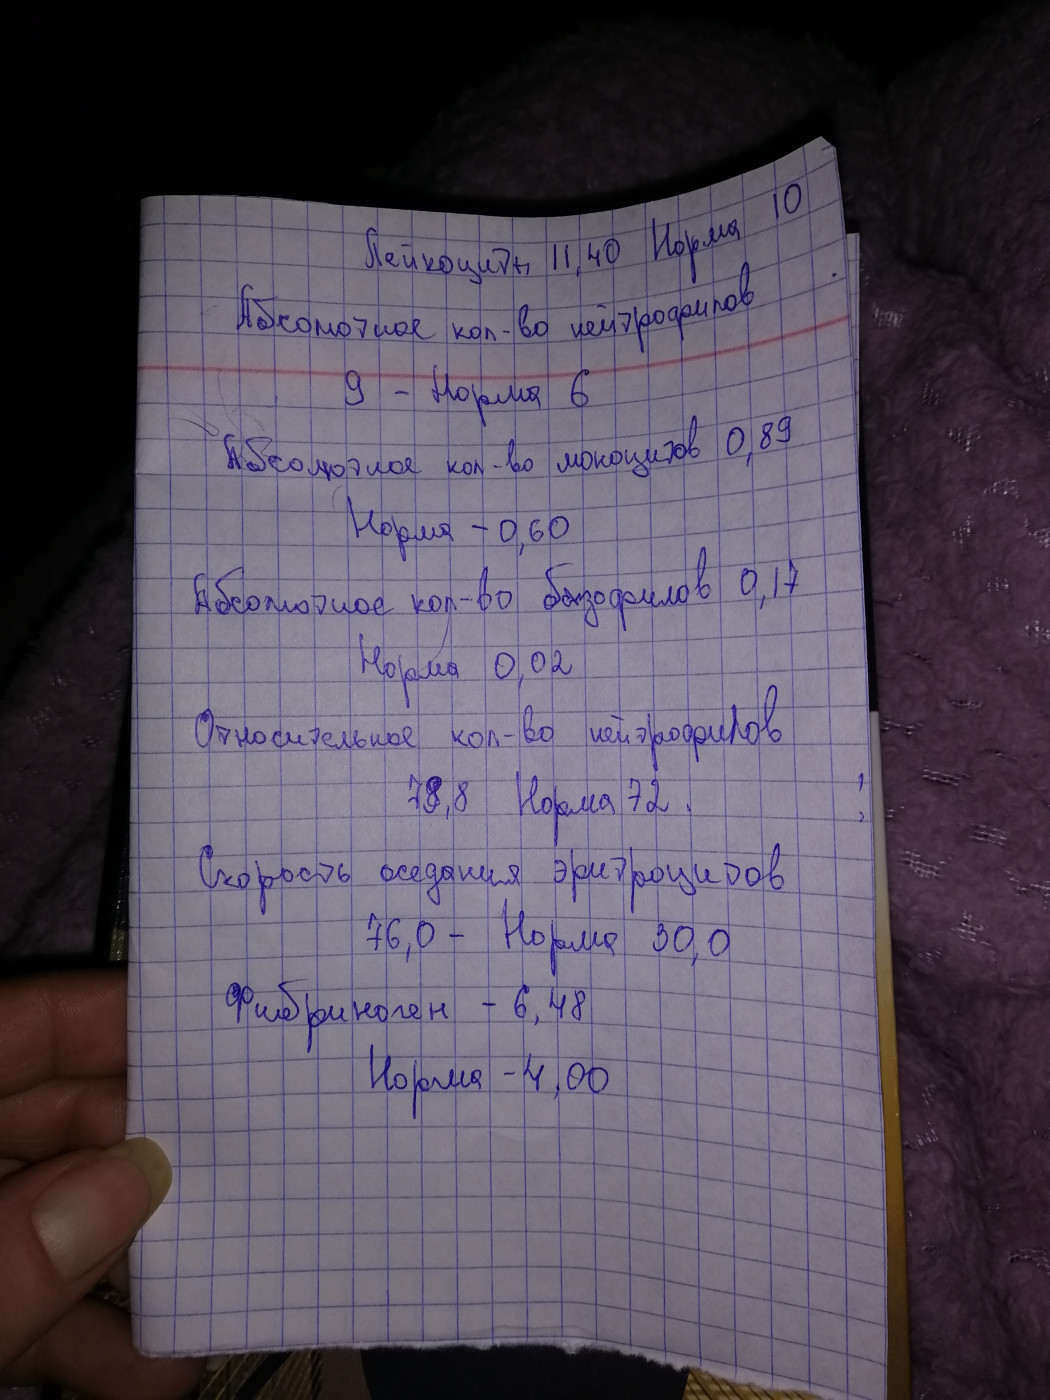 Лейкоциты 11,40 Норма 10
Абсолютное кол-во нейтрофилов
9 - Норма 6
Абсолютное кол-во моноцитов 0,89
Норма - 0,60
Абсолютное кол-во базофилов 0,17
Норма 0,02
Относительное кол-во нейтрофилов
78,8 Норма 72.
Скорость оседания эритроцитов
76,0 - Норма 30,0
Фибриноген - 6,48
Норма - 4,00